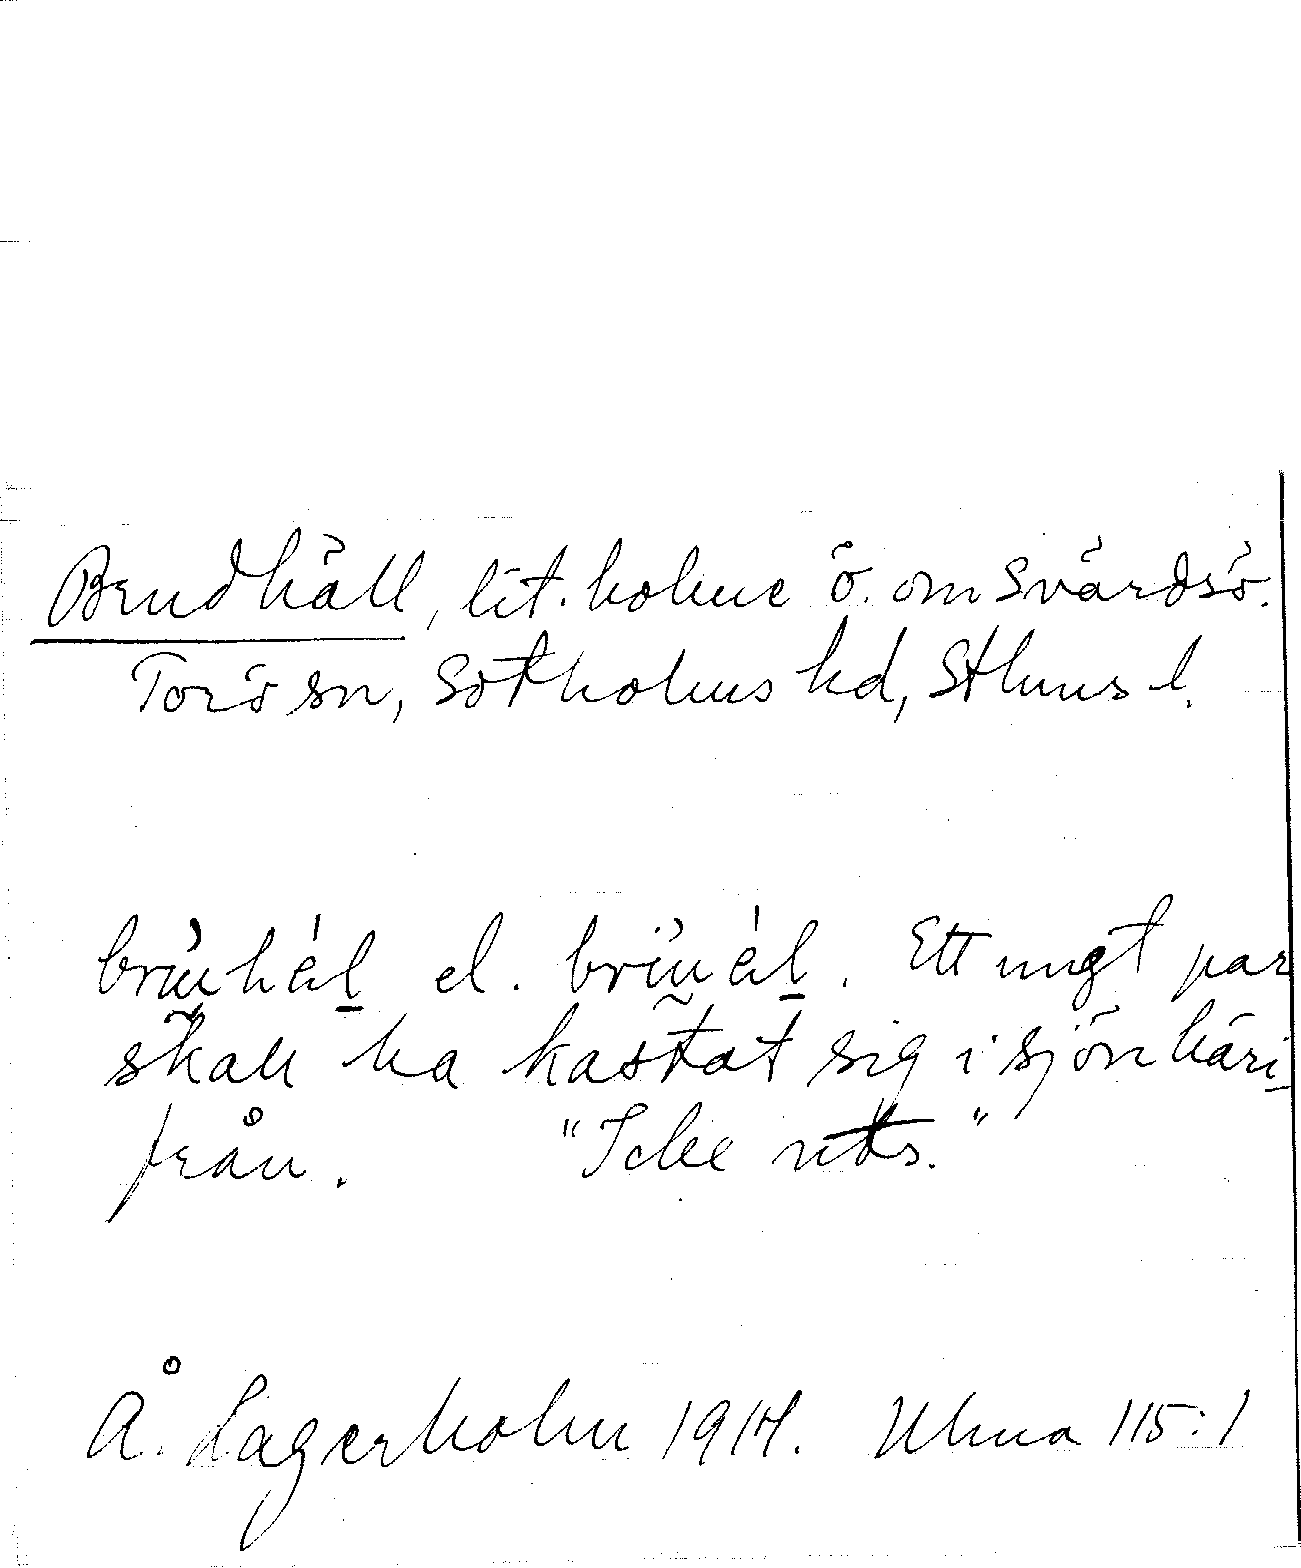 Brudhäll, lit. holme ö. om Svärdsö.
Torö sn, Sotholms hd, Sthlms l.
el. Ett ungt par
skall ha kastat sig i sjön häri-
från. "Icke uts."
Å. Lagerholm 1914. Ulma 115:1